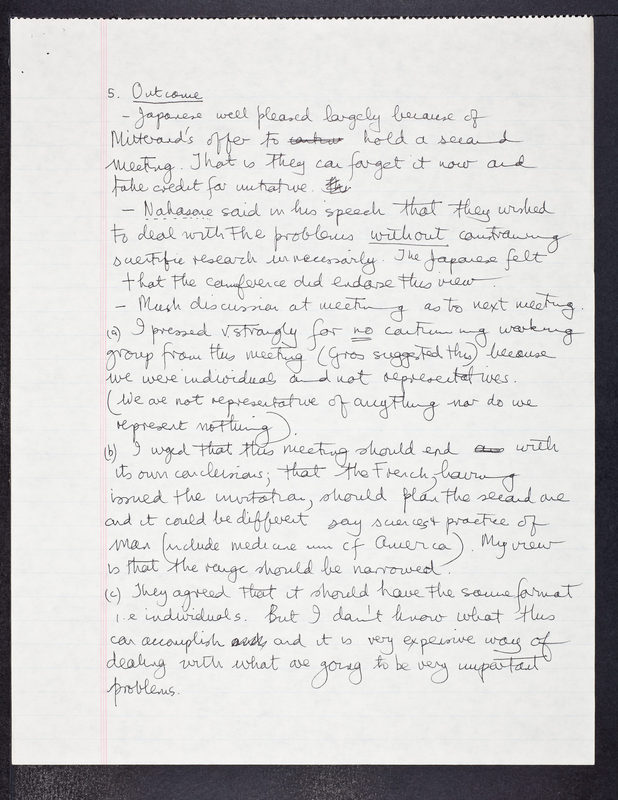 5. Outcome
- Japanese well pleased largely because of
Mitterand's offer to hold a second
meeting. That is they can forget it now and
take credit for initiative.
- Nakasone said in his speech that they wished
to deal with the problems without constraining
scientific research unnecessarily. The Japanese felt
that the conference did endorse this view.
- Much discussion at meeting as to next meeting.
(a) I pressed v strongly for no continuing working
group from this meeting (Gros suggested this) because
we were individuals and not representatives.
(We are not representative of anything nor do we
represent nothing).
(b) I urged that this meeting should end with
its own conclusions; that the French, having
issued the invitation, should plan the second one
and it could be different say sciences & practice of
man (include medicine cf America). My view
is that the range should be narrowed.
(c) They agreed that it should have the same format
i.e individuals. But I don't know what this
can accomplish and it is very expensive way of
dealing with what are going to be very important
problems.